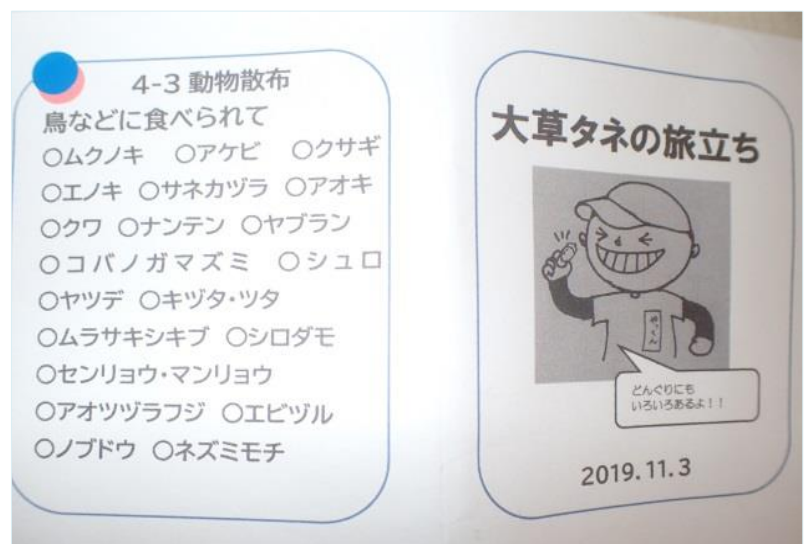 4-3 動物散布
鳥などに食べられて
○ムクノキ ○アケビ ○クサギ
○エノキ ○サネカヅラ ○アオキ
○クワ ○ナンテン ○ヤブラン
○コバノガマズミ ○シュロ
○ヤツデ ○キヅタ・ツタ
○ムラサキシキブ ○シロダモ
○センリョウ・マンリョウ
○アオツヅラフジ ○エビヅル
○ノブドウ ○ネズミモチ
大草タネの旅立ち
やっくん
どんぐりにも
いろいろあるよ！！
2019.11.3